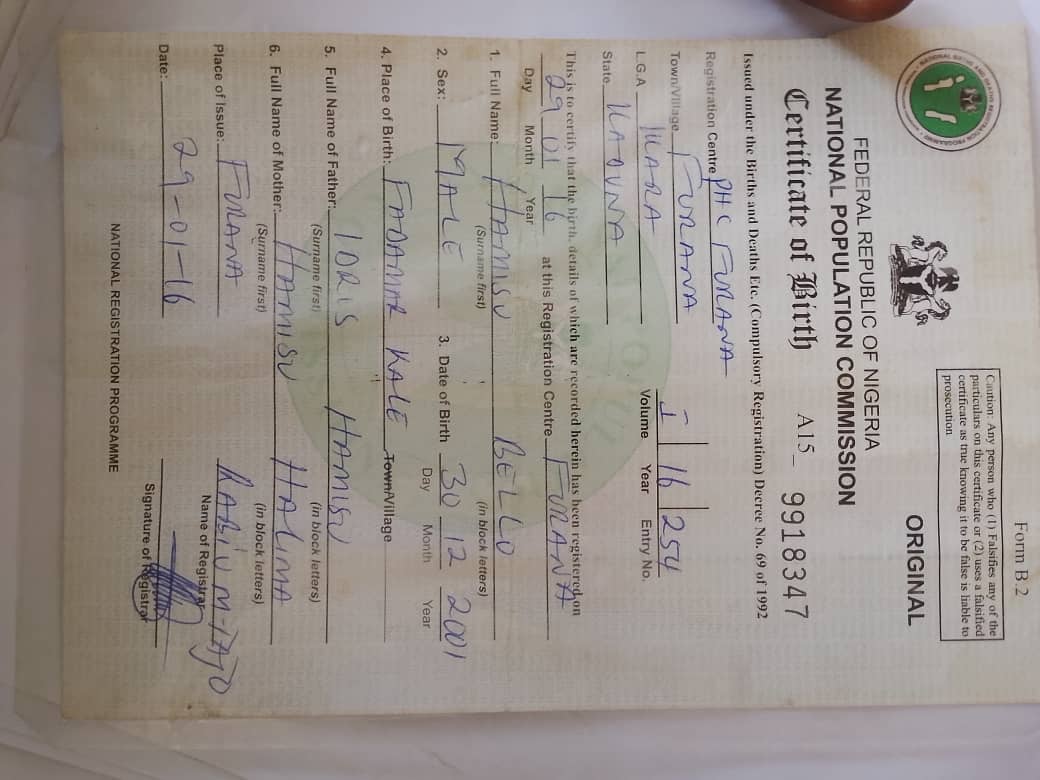 Form B.2
Caution: Any person who (1) Falsifies any of the
particulars on this certificate or (2) uses a falsified
certificate as true knowing it to be false is liable to
prosecution
ORIGINAL
FEDERAL REPUBLIC OF NIGERIA
NATIONAL POPULATION COMMISSION
Certificate of Birth A15_ 9918347
Issued under the Births and Deaths Etc. (Compulsory Registration) Decree No. 69 of 1992
Registration Centre PHC FURANA
Town/Village FURANA
L.G.A
I 16 254
Volume Year Entry No.
State KADUNA
This is to certify that the birth, details of which are recorded herein has been registered on
29 01 16 at this Registration Centre FURANA
Day Month Year
1. Full Name: HAMISU BELLO
(Surname first) (in block letters)
2. Sex: MALE 3. Date of Birth 30 12 2001
Day Month Year
4. Place of Birth: KALE Town/Village
5. Full Name of Father: IDRIS HAMISU
(Surname first) (in block letters)
6. Full Name of Mother: HAMISU HALIMA
(Surname first) (in block letters)
Place of Issue: FURANA RABIU M-TAJO
Name of Registrar
Date: 29-01-16
Signature of Registrar
NATIONAL REGISTRATION PROGRAMME